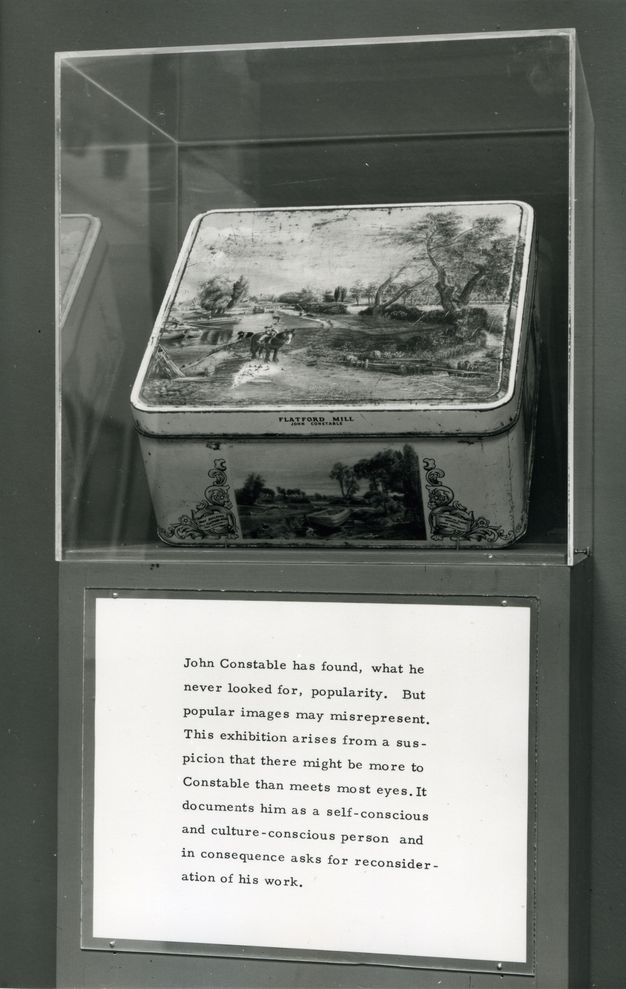 FLATFORD MILL
JOHN CONSTABLE
John Constable has found, what he
never looked for, popularity. But
popular images may misrepresent.
This exhibition arises from a sus-
picion that there might be more to
Constable than meets most eyes. It
documents him as a self-conscious
and culture-conscious person and
in consequence asks for reconsider-
ation of his work.